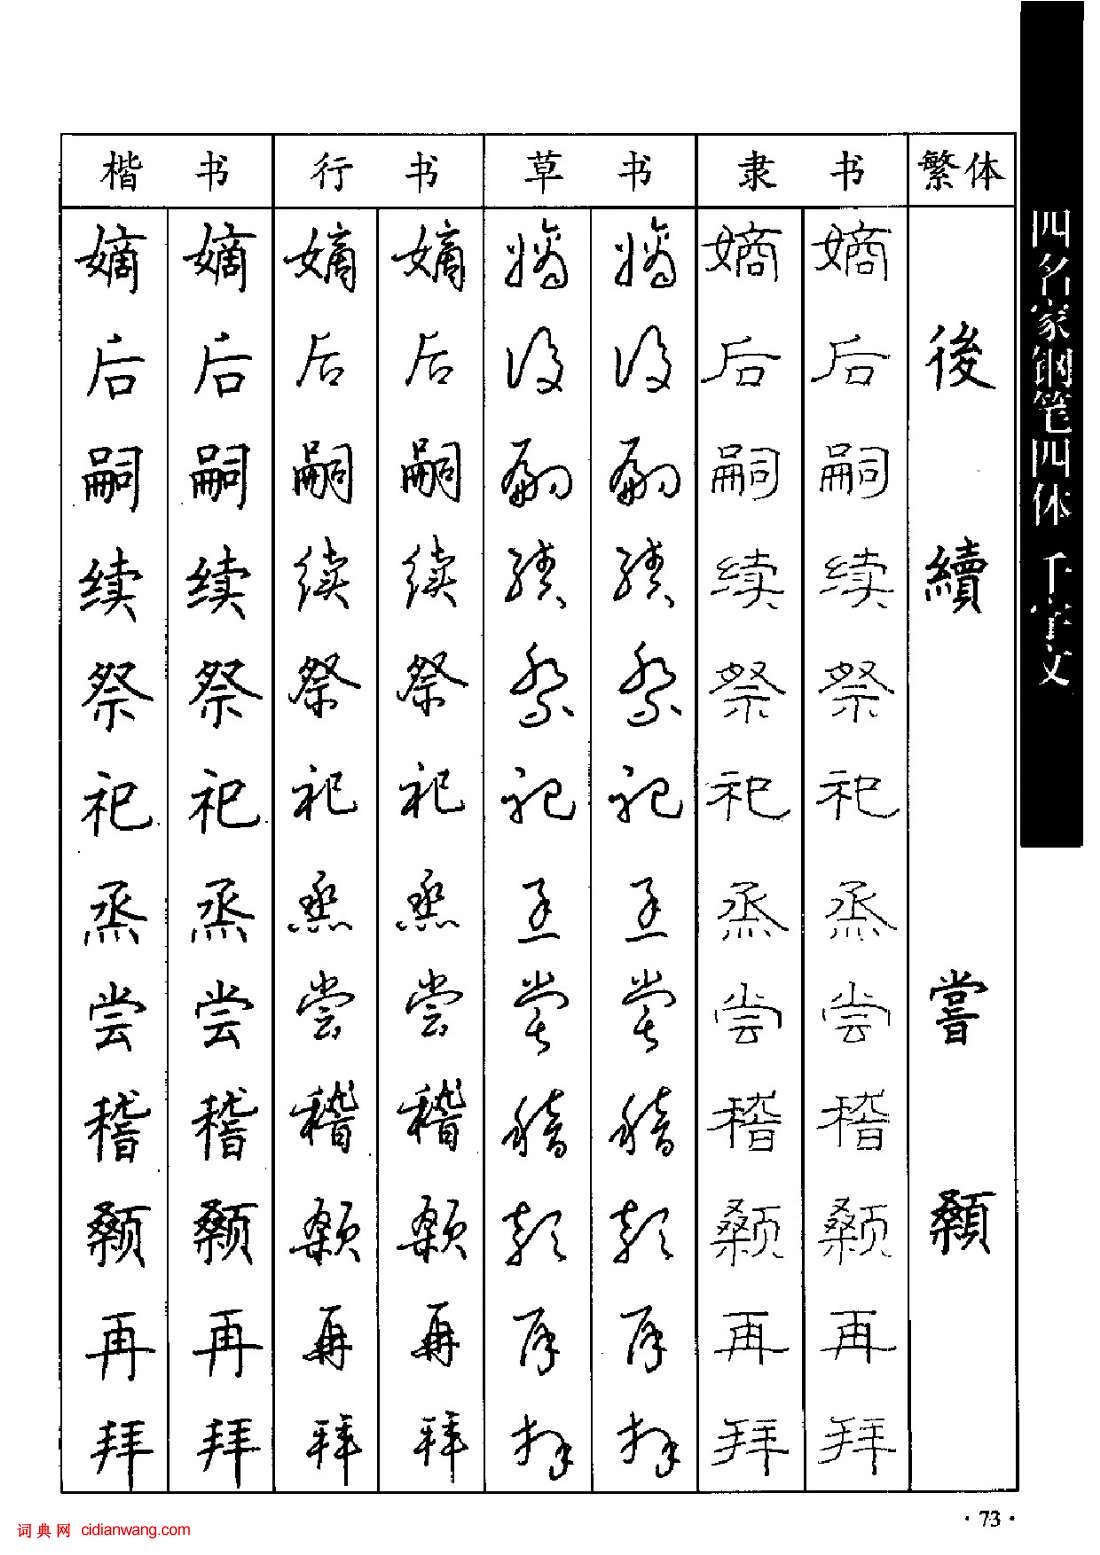 楷书 行书 草书 隶书 繁体
嫡 嫡 嫡 嫡 嫡 嫡 嫡 嫡
后 后 后 后 后 后 后 后 後
嗣 嗣 嗣 嗣 嗣 嗣 嗣 嗣
续 续 续 续 续 续 续 续 續
祭 祭 祭 祭 祭 祭 祭 祭
祀 祀 祀 祀 祀 祀 祀 祀
烝 烝 烝 烝 烝 烝 烝 烝
尝 尝 尝 尝 尝 尝 尝 尝 嘗
稽 稽 稽 稽 稽 稽 稽 稽
颡 颡 颡 颡 颡 颡 颡 颡 顙
再 再 再 再 再 再 再 再
拜 拜 拜 拜 拜 拜 拜 拜
四名家钢笔四体 千字文
·73·
词典网 cidianwang.com